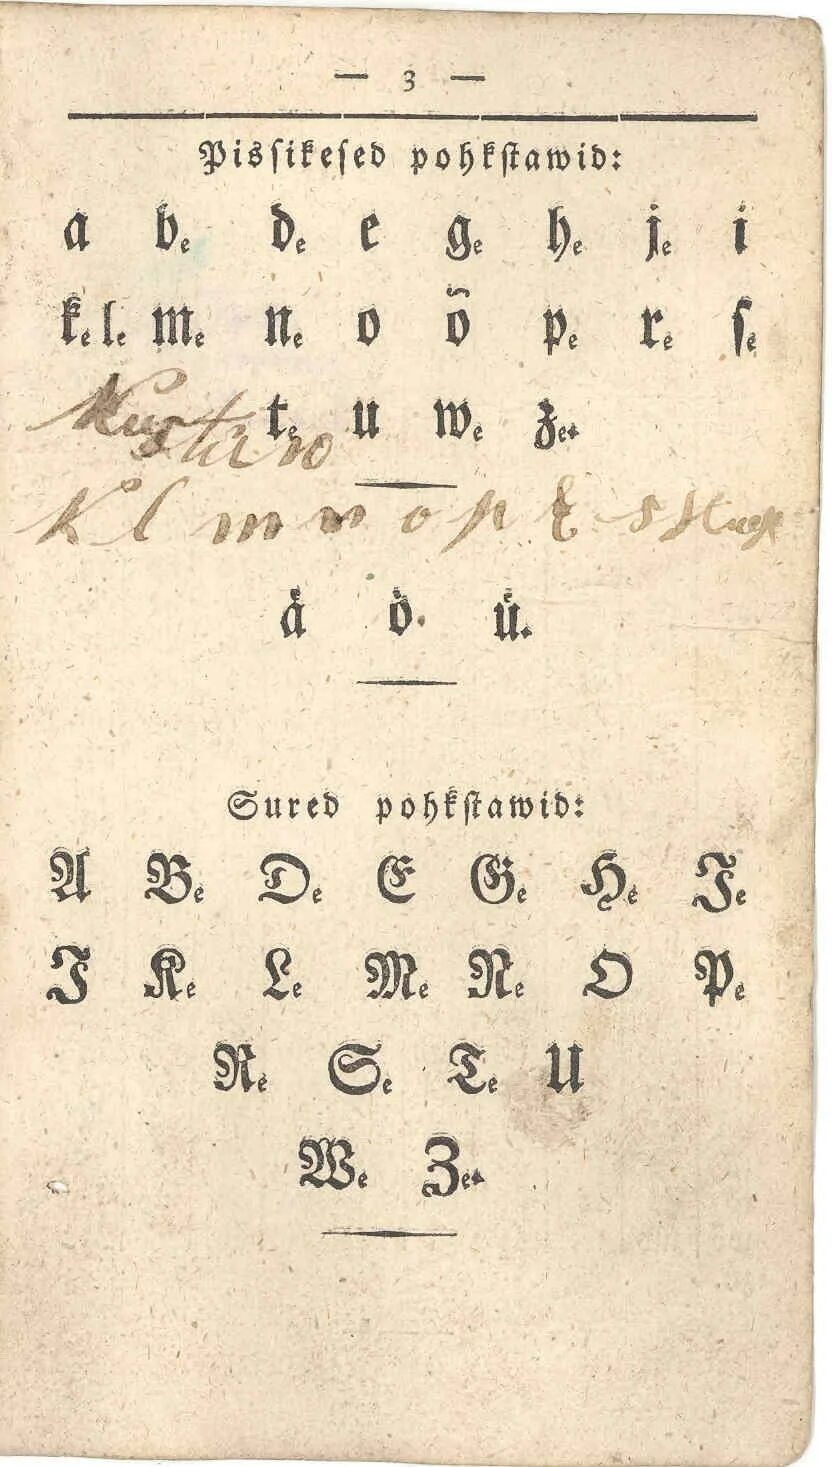 — 3 —
Pisſikeſed pohkſtawid:
a be de e ge he je i
ke le me ne o õ pe re ſe
te u we ze.
K l m n o p
å ö ü.
Sured pohkſtawid:
A Be De E Ge He Je
I Ke Le Me Ne O Pe
Re Se Te U
We Ze.